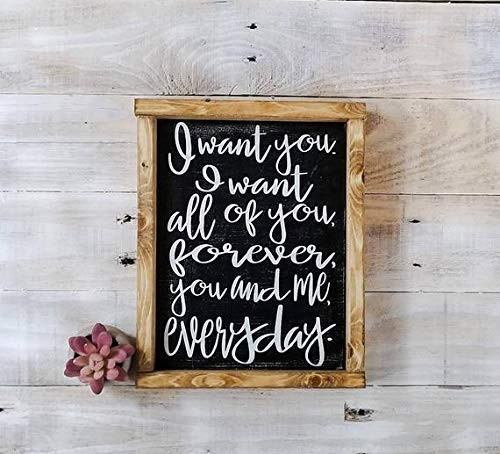 I want you.
I want
all of you,
forever,
you and me,
everyday.